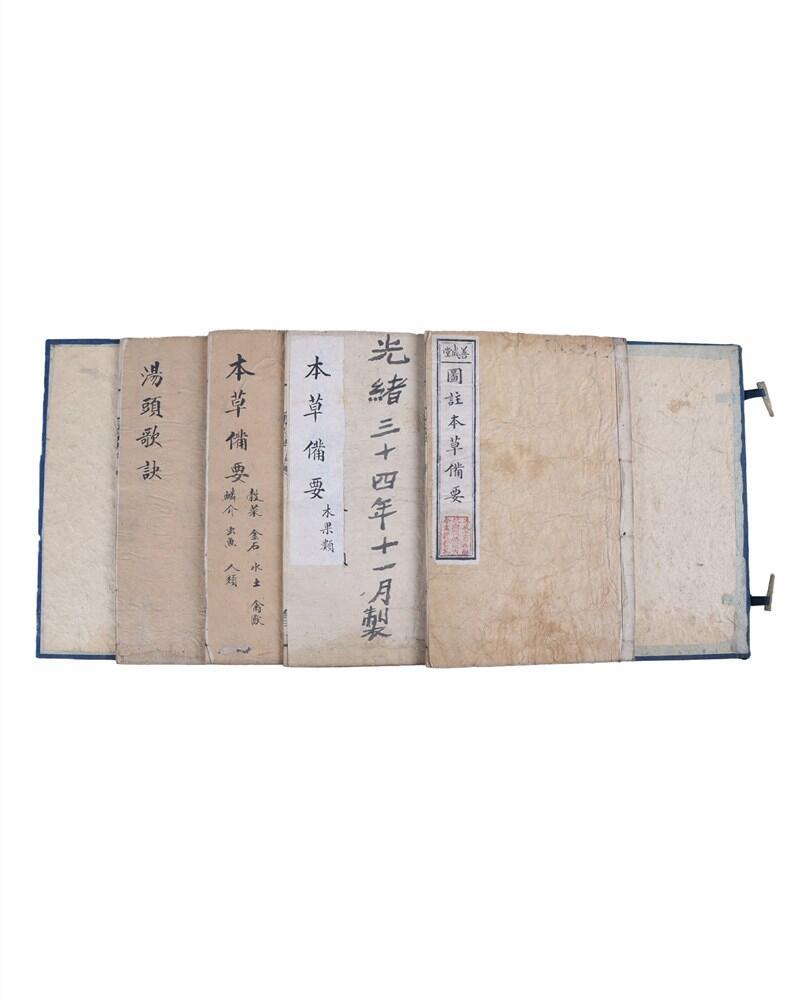 善成堂
圖註本草備要
光緒三十四年十一月製
本草備要
木果類
本草備要
穀菜 金石 水土 禽獸
鱗介 虫魚 人類
湯頭歌訣